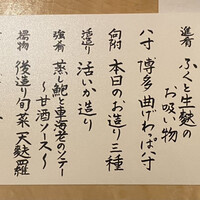 進肴
ふくと生麩の
お吸い物
八寸
博多曲げわっぱ八寸
向附
本日のお造り三種
活造り
活いか造り
強肴
蒸し鮑と車海老のソテー
～甘酒ソース～
揚物
後造り旬菜天麩羅